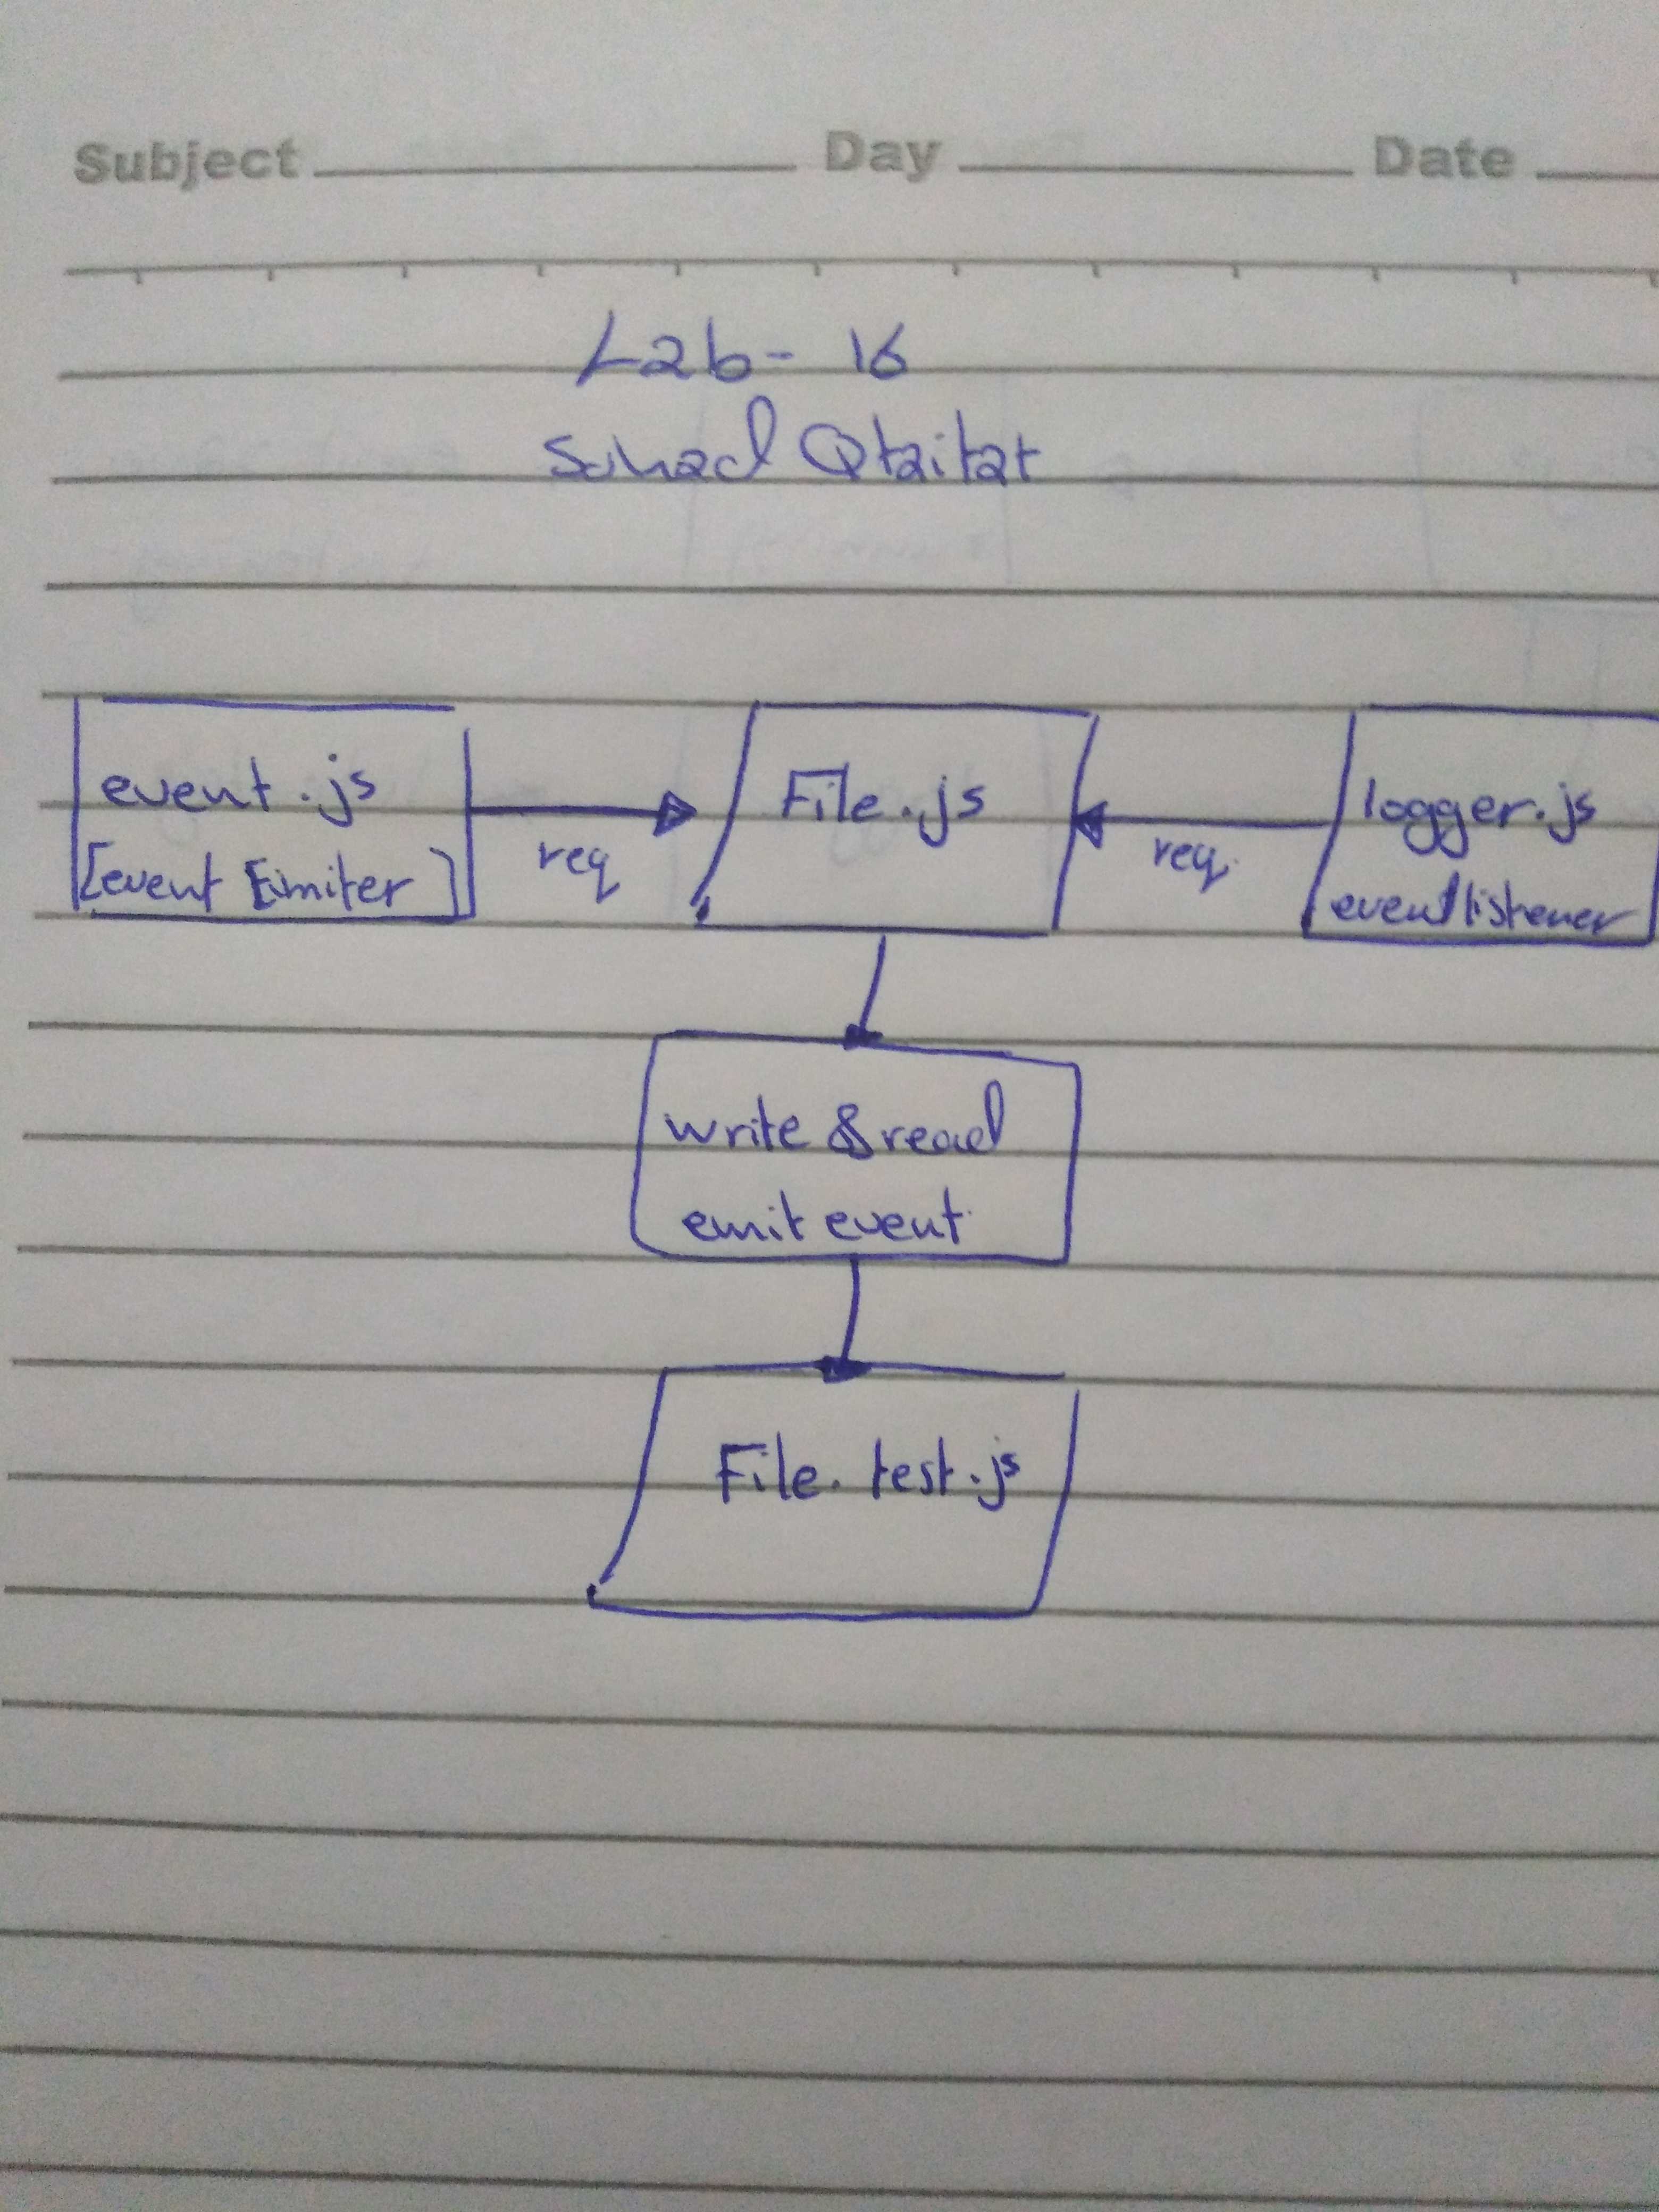 Subject Day Date
Lab- 16
Suhad Qtaitat
event.js
[event Eimiter]
req
File.js
req.
logger.js
event listener
write & read
emit event.
File. test.js